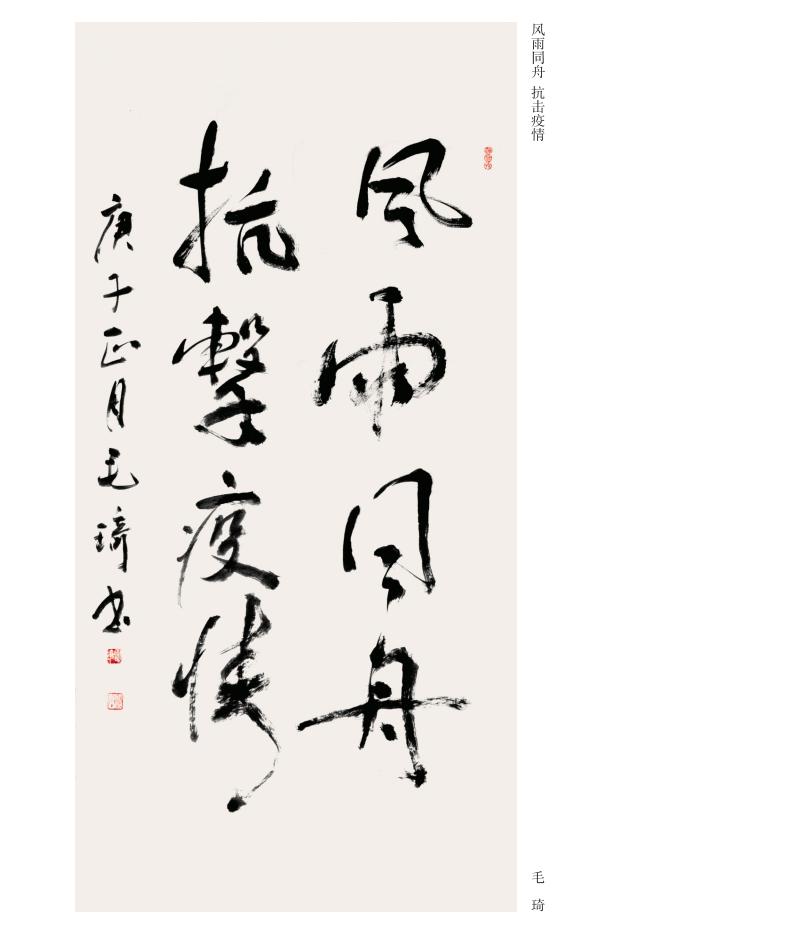 风雨同舟 抗击疫情
風雨同舟
抗擊疫情
庚子正月毛琦书
毛 琦